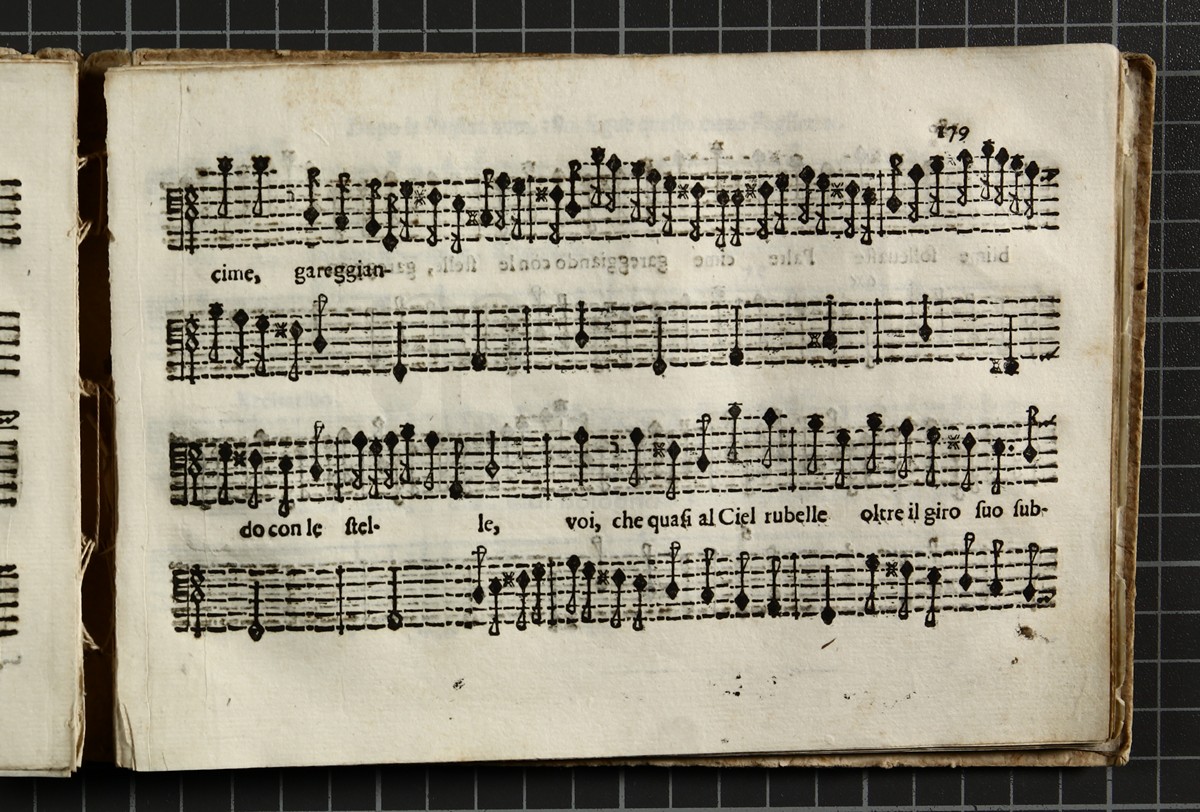 179
cime, gareggian-
do con le stel- le, voi, che quasi al Ciel rubelle oltre il giro suo sub-